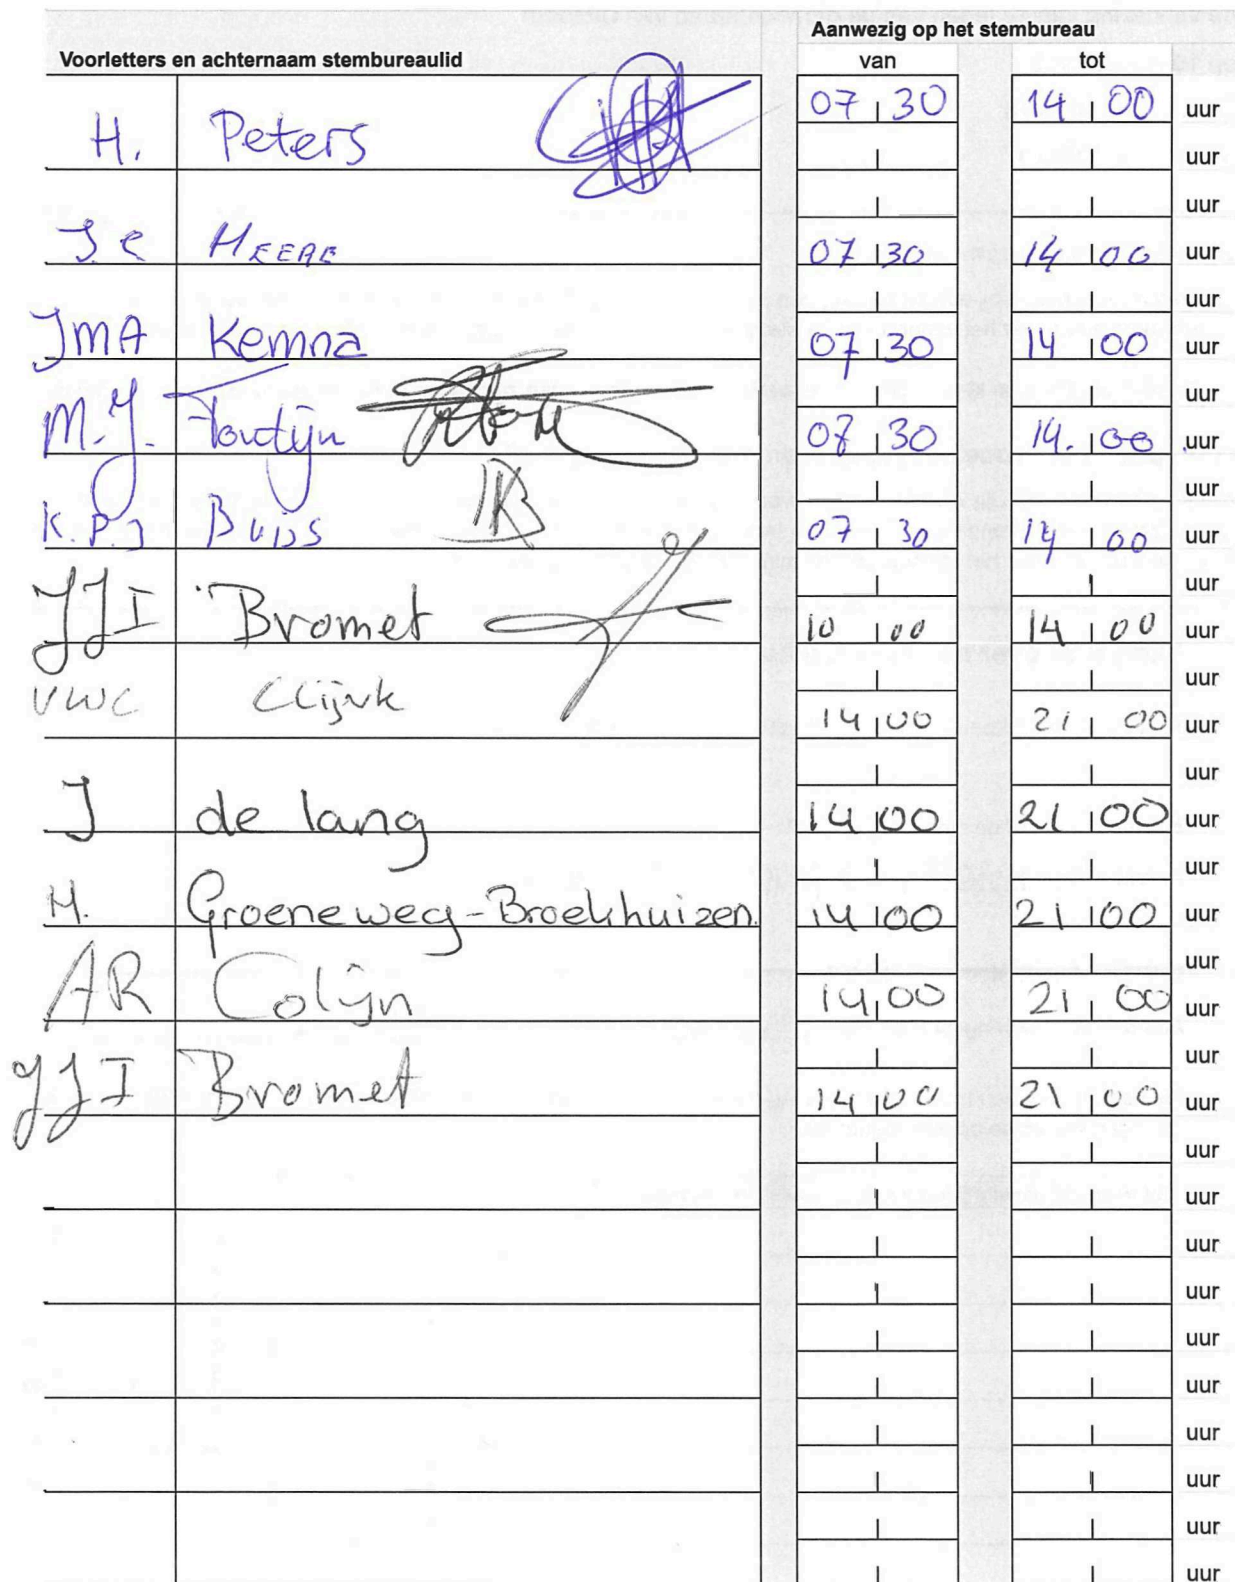 Aanwezig op het stembureau
Voorletters en achternaam stembureaulid van tot
07 30 14 00 uur
H. Peters uur
uur
J.C HEERE 07 30 14 00 uur
uur
JMA Kemna 07 30 14 00 uur
uur
M.J. 07 30 14.00 uur
uur
K.P.J BUIJS 07 30 14 00 uur
uur
JJI Bromet 10 00 14 00 uur
uur
VWC Clijnk 14 00 21 00 uur
uur
J de lang 14 00 21 00 uur
uur
H. Groeneweg-Broekhuizen. 14 00 21 00 uur
uur
AR Colijn 14 00 21 00 uur
uur
JJI Bromet 14 00 21 00 uur
uur
uur
uur
uur
uur
uur
uur
uur
uur
uur